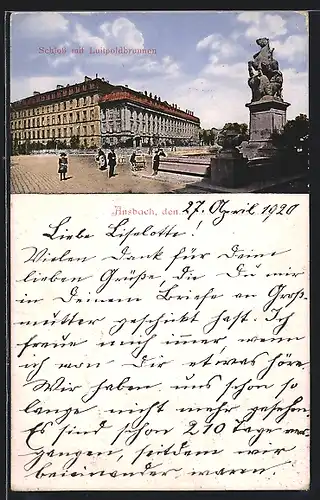 Schloß mit Luitpoldbrunnen
Ansbach, den 27. April 1920
Liebe Liselotte!
Vielen Dank für Deine
lieben Grüße, die Du mir
in Deinem Briefe an Groß-
mutter geschickt hast. Ich
freue mich imer, wenn
ich von Dir etwas höre.
Wir haben uns schon so
lange nicht mehr gesehen.
Es sind schon 210 Tage ver-
gangen, seitdem wir
beieinander waren.